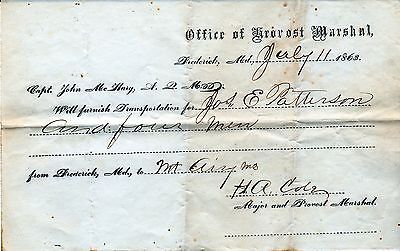 Office of Provost Marshal,
Frederick, Md., July 11 1863.
Capt. John McHary, A. Q. M.
Will furnish Transportation for Jos E Patterson
and four men
from Frederick, Md., to Mt Airy Md
H A Cole
Major and Provost Marshal.